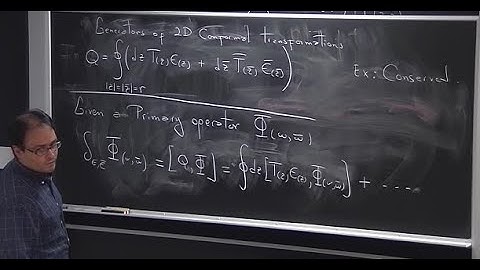 Generators of 2D Conformal transformations
Q = ∮ ( dz T(z) ε(z) + dz̄ T̄(z̄) ε̄(z̄) )
|z|=|z̄|=r
Ex: Conserved.
Given a Primary operator Φ(ω, ω̄)
δ_{ε,ε̄} Φ(ω,ω̄) = [Q, Φ] = ∮ dz [T(z) ε(z), Φ(ω,ω̄)] + ....